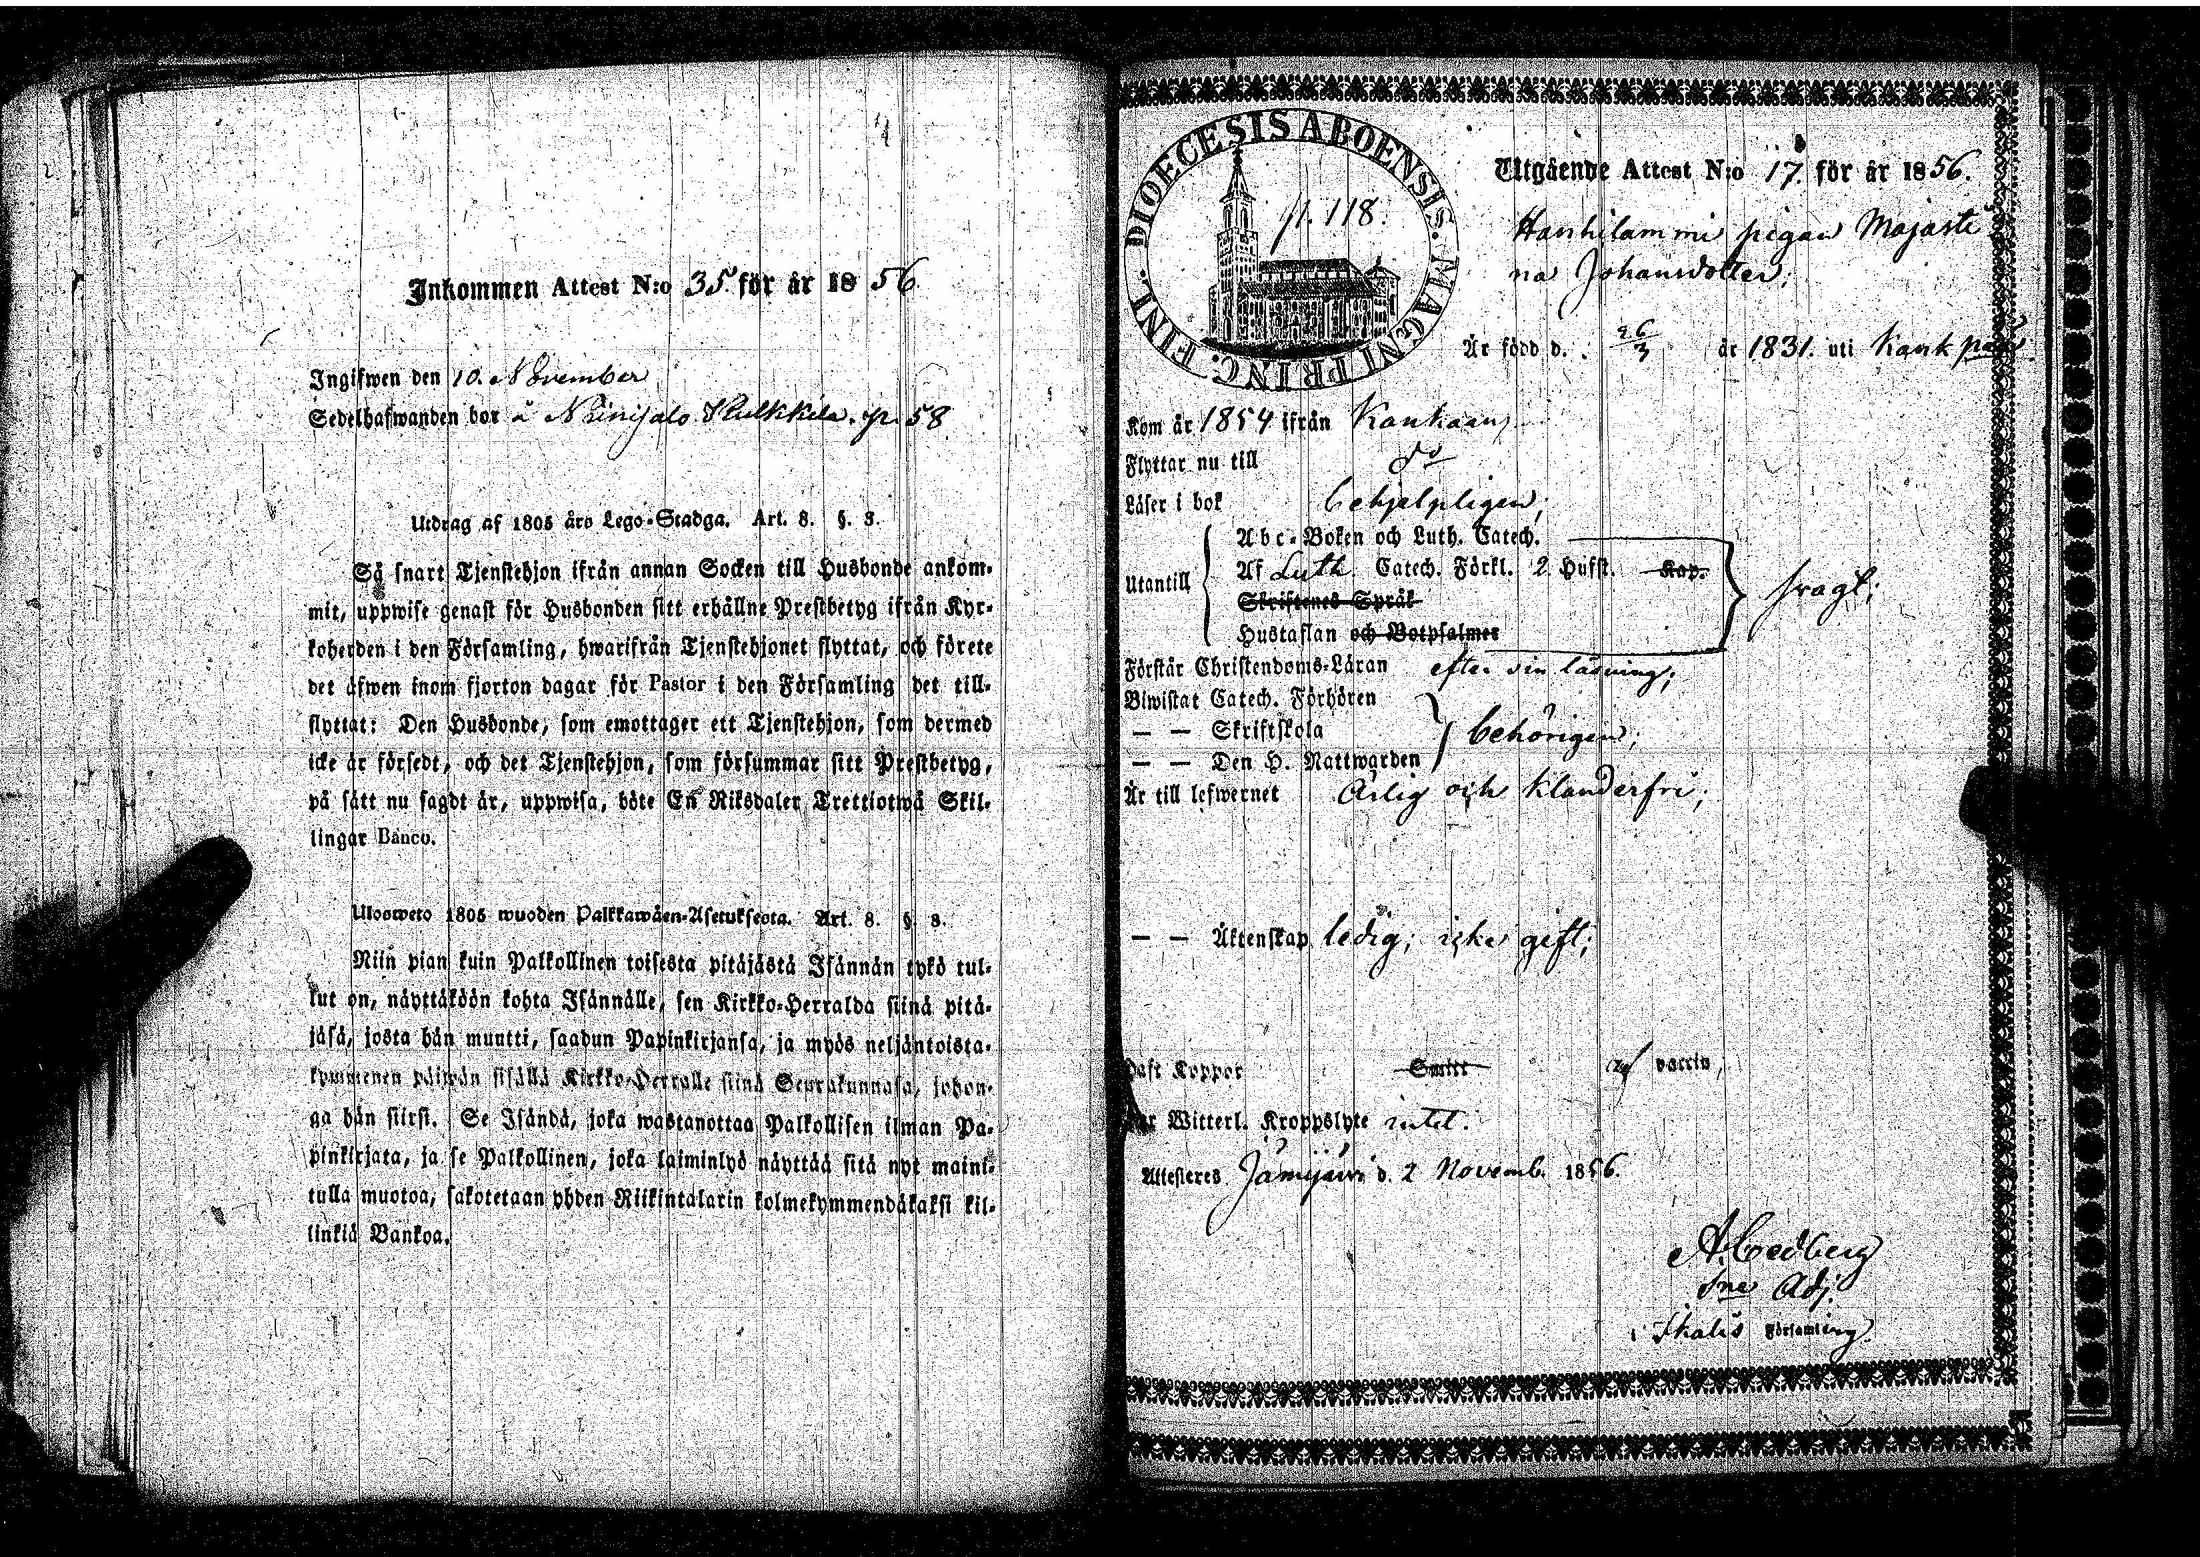 Inkommen Attest N:o 35 för år 1856
Ingifwen den 10. November
Sedelhafwanden bor å Niinijalo Kulkkila. p. 58
Utdrag af 1805 års Lego-Stadga. Art. 8. §. 3.
Så snart Tjenstehjon ifrån annan Socken till Husbonde ankom-
mit, uppwise genast för Husbonden sitt erhållne Prestbetyg ifrån Kyr-
koherden i den Församling, hwarifrån Tjenstehjonet flyttat, och förete
det äfwen inom fjorton dagar för Pastor i den Församling det till-
flyttat: Den Husbonde, som emottager ett Tjenstehjon, som dermed
icke är försedt, och det Tjenstehjon, som försummar sitt Prestbetyg,
på sätt nu sagdt är, uppwisa, böte En Riksdaler Trettiotwå Skil-
lingar Banco.
Ulosweto 1805 wuoden Palkkawäen-Asetuksesta. Art. 8. §. 3.
Niin pian kuin Palkollinen toisesta pitäjästä Isännän tykö tul-
lut on, näyttäköön kohta Isännälle, sen Kirkko-Herralda siinä pitä-
jäsä, josta hän muutti, saadun Papinkirjansa, ja myös neljäntoista-
kymmenen päiwän sisällä Kirkko-Herralle siinä Seurakunnasa, johon-
ga hän siirsi. Se Isändä, joka wastanottaa Palkollisen ilman Pa-
pinkirjata, ja se Palkollinen, joka laiminlyö näyttää sitä nyt maini-
tulla muotoa, sakotetaan yhden Riikintalarin kolmekymmendäkaksi kil-
linkiä Bankoa.
DIOECESIS ABOENSIS. MAGNI PRINC. FINL.
p. 118.
Utgående Attest N:o 17. för år 1856.
Hanhilammi pigan Majasti
na Johansdotter;
Är född d. 26/3 år 1831. uti Kankpää
Kom år 1854 ifrån Kankaan
Flyttar nu till do
Läser i bok behjelpligen;
Utantill
Abc-Boken och Luth. Catech.
Af Luth. Catech. Förkl. 2 Hufst. Kap.
Skriftenes Språk
Hustaflan och Botpsalmer
svagt;
Förstår Christendoms-Läran efter sin läsning;
Biwistat Catech. Förhören
— — Skriftskola
— — Den H. Nattwarden
behörigen;
Är till lefwernet Ärlig och klanderfri;
— — Äktenskap ledig; icke gift;
Haft Koppor Smitt af vaccin,
Har Witterl. Kroppslyte intet.
Attesteres Jämijärvi d. 2 Novemb. 1856.
A. Cedberg
Sne Adj.
i Ikalis Församling